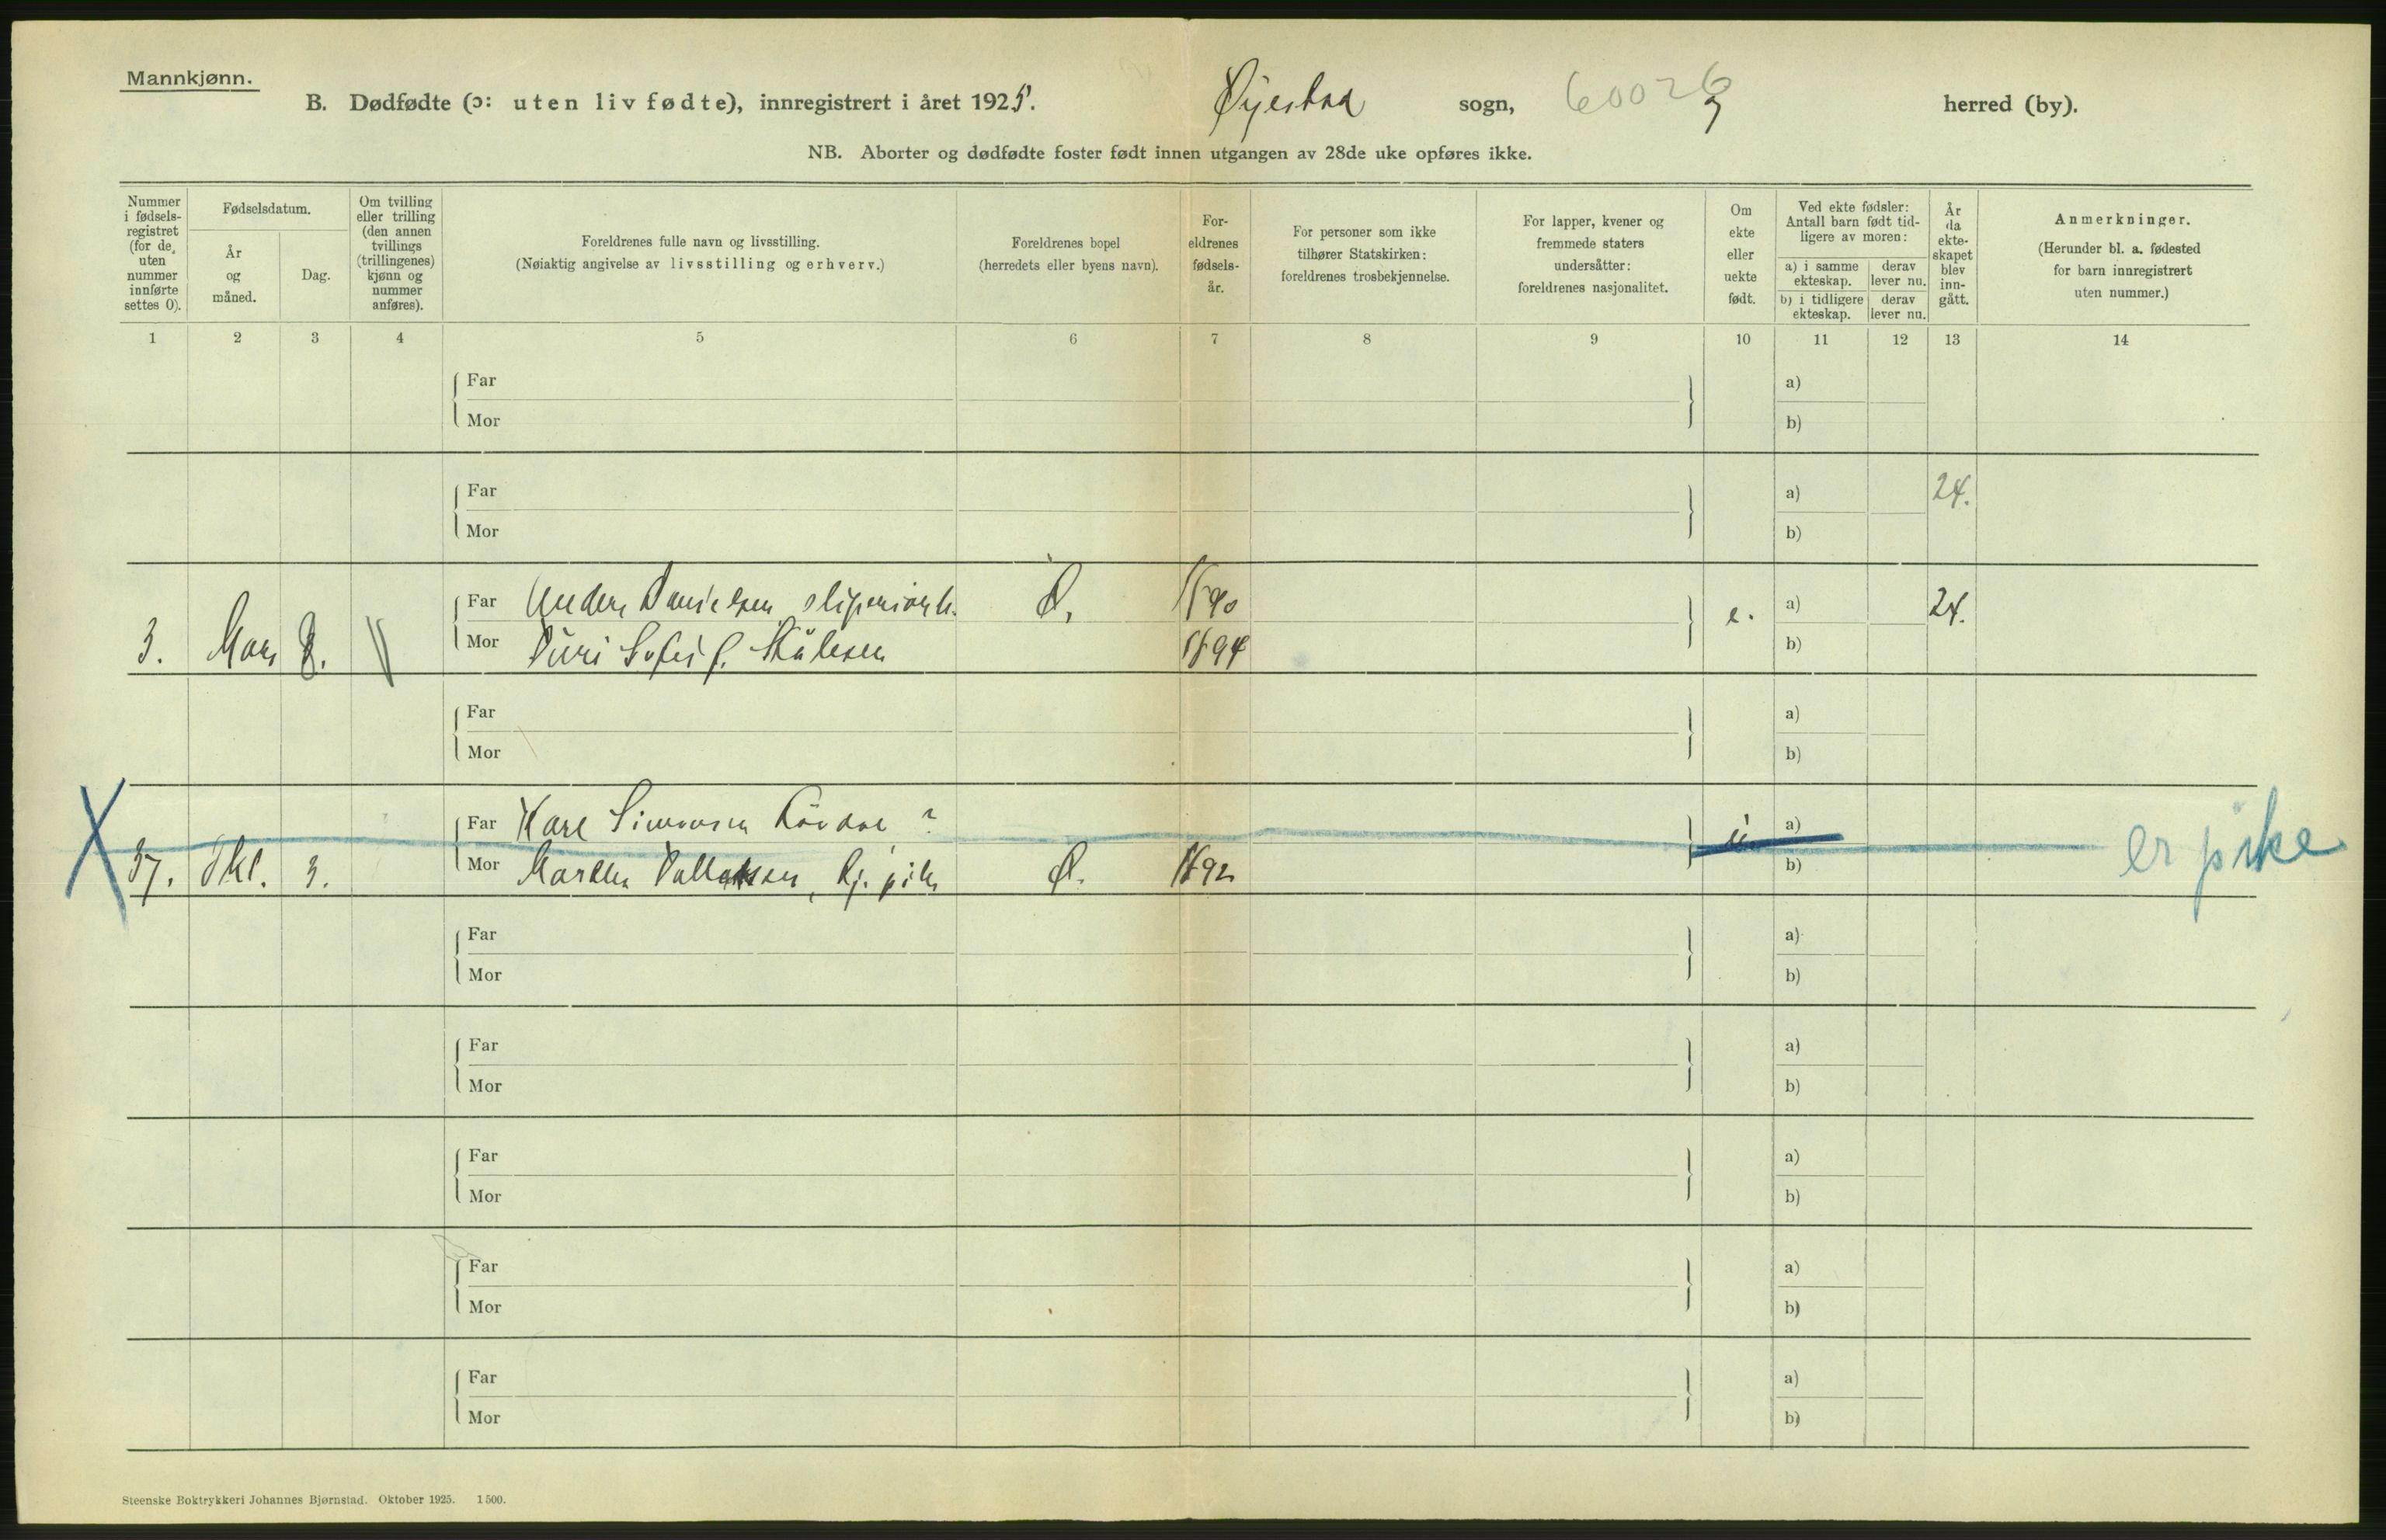 Mannkjønn.
B. Dødfødte (ɔ: uten liv fødte), innregistrert i året 1925. Øyestad sogn, 60026 herred (by).
NB. Aborter og dødfødte foster født innen utgangen av 28de uke opføres ikke.
Nummer i fødsels-registret (for de uten nummer innførte settes 0).
Fødselsdatum.
År og måned.
Dag.
Om tvilling eller trilling (den annen tvillings (trillingenes) kjønn og nummer anføres).
Foreldrenes fulle navn og livsstilling.
(Nøiaktig angivelse av livsstilling og erhverv.)
Foreldrenes bopel
(herredets eller byens navn).
For-eldrenes fødsels-år.
For personer som ikke tilhører Statskirken: foreldrenes trosbekjennelse.
For lapper, kvener og fremmede staters undersåtter: foreldrenes nasjonalitet.
Om ekte eller uekte født.
Ved ekte fødsler: Antall barn født tid-ligere av moren:
a) i samme ekteskap. derav lever nu.
b) i tidligere ekteskap. derav lever nu.
År da ekte-skapet blev inn-gått.
Anmerkninger.
(Herunder bl. a. fødested for barn innregistrert uten nummer.)
1 2 3 4 5 6 7 8 9 10 11 12 13 14
Far a)
Mor b)
Far a) 24.
Mor b)
Far Anders Danielsen Ø. 1890 e. a) 24.
3. Mars 8. Mor Sofie f. 1894 b)
Far a)
Mor b)
Far Karl Simonsen ? u. a) er pike
37. Okt. 3. Mor Ø. 1892 b)
Far a)
Mor b)
Far a)
Mor b)
Far a)
Mor b)
Far a)
Mor b)
Far a)
Mor b)
Steenske Boktrykkeri Johannes Bjørnstad. Oktober 1925. 1500.